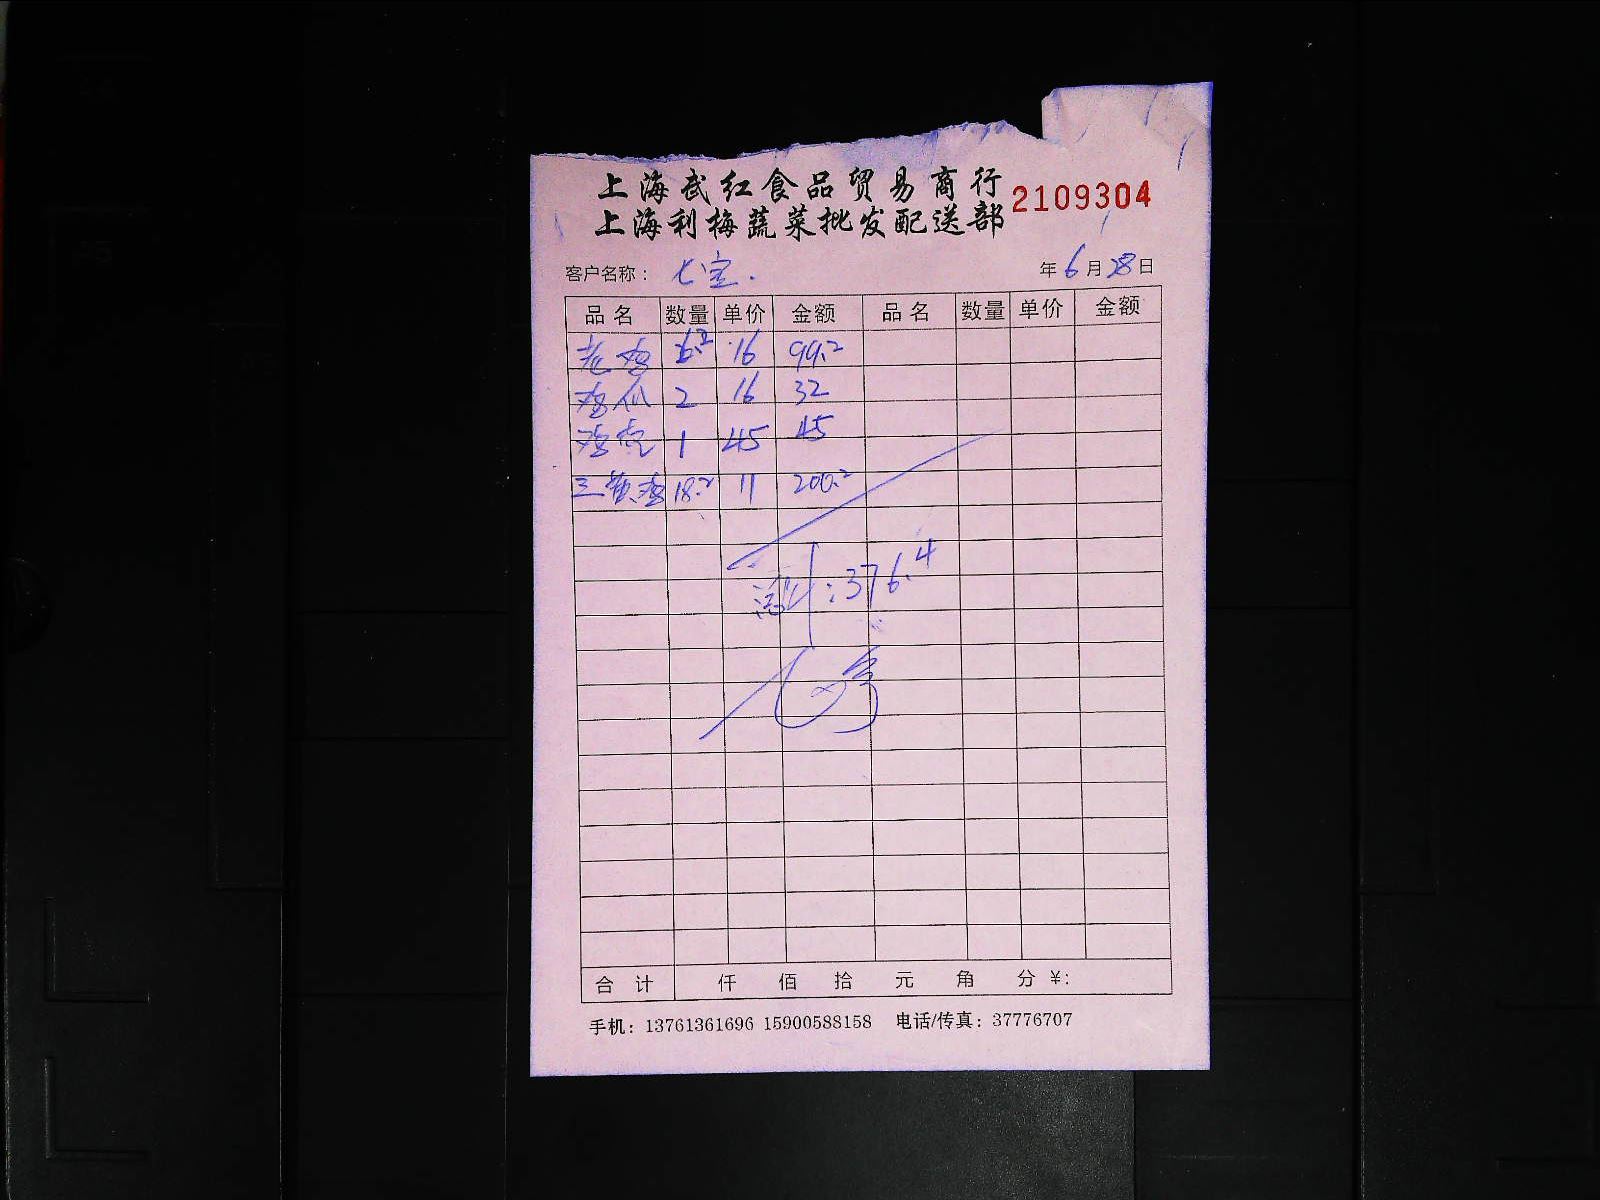 上海武红食品贸易商行
上海利梅蔬菜批发配送部
2109304
客户名称： 七宝. 年 6 月 28 日
品名 数量 单价 金额 品名 数量 单价 金额
老鸡 6.2 16 99.2
鸡爪 2 16 32
鸡壳 1 45 45
三黄鸡 18.2 11 200.2
:376.4
合计 仟 佰 拾 元 角 分 ¥:
手机：13761361696 15900588158 电话/传真：37776707